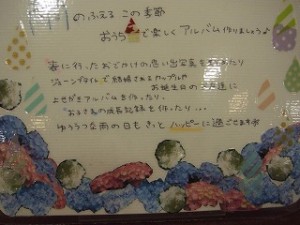 のふえる この季節
おうちで楽しく アルバム作りましょう♪
春に行ったおでかけの思い出写真を
ジューンブライドで結婚されるカップルや
お誕生日の
よせがきアルバムを作ったり、
お子さまの成長記録を作ったり...
ゆううつな雨の日もきっと ハッピーに過ごせますね